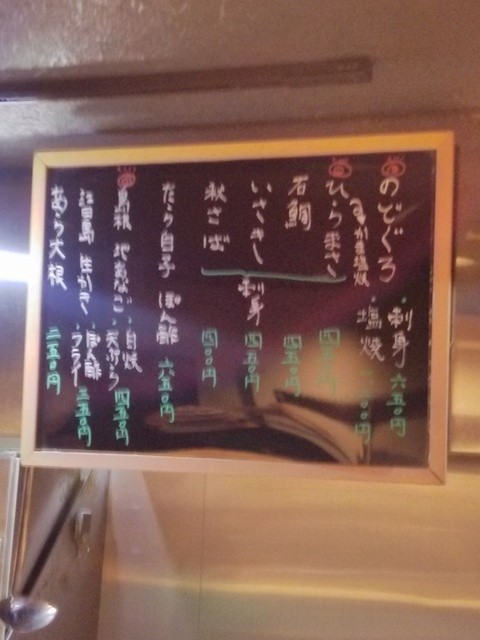 のどぐろ ・刺身 六五〇円
・塩焼
ひらまさ 四五〇円
石鯛 四五〇円
いさき 刺身 四五〇円
秋さば 四〇〇円
たら白子 ぽん酢 六五〇円
島根 地あなご ・白焼 ・天ぷら 四五〇円
江田島 生かき ・ぽん酢 ・フライ 三五〇円
あら大根 二五〇円